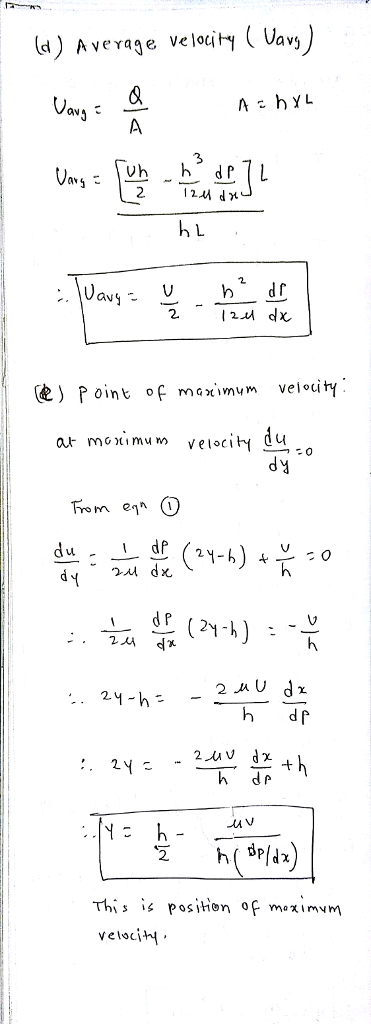 (d) Average velocity (Uavg)
Uavg = Q/A    A = h×L
Uavg = [Uh/2 - h³/12μ dP/dx] L / hL
∴ Uavg = U/2 - h²/12μ dP/dx
(e) Point of maximum velocity:
at maximum velocity du/dy = 0
From eqn ①
du/dy = 1/2μ dP/dx (2y-h) + U/h = 0
∴ 1/2μ dP/dx (2y-h) = -U/h
∴ 2y-h = - 2μU/h dx/dP
∴ 2y = - 2μU/h dx/dP + h
∴ y = h/2 - μU/h(dP/dx)
This is position of maximum
velocity.